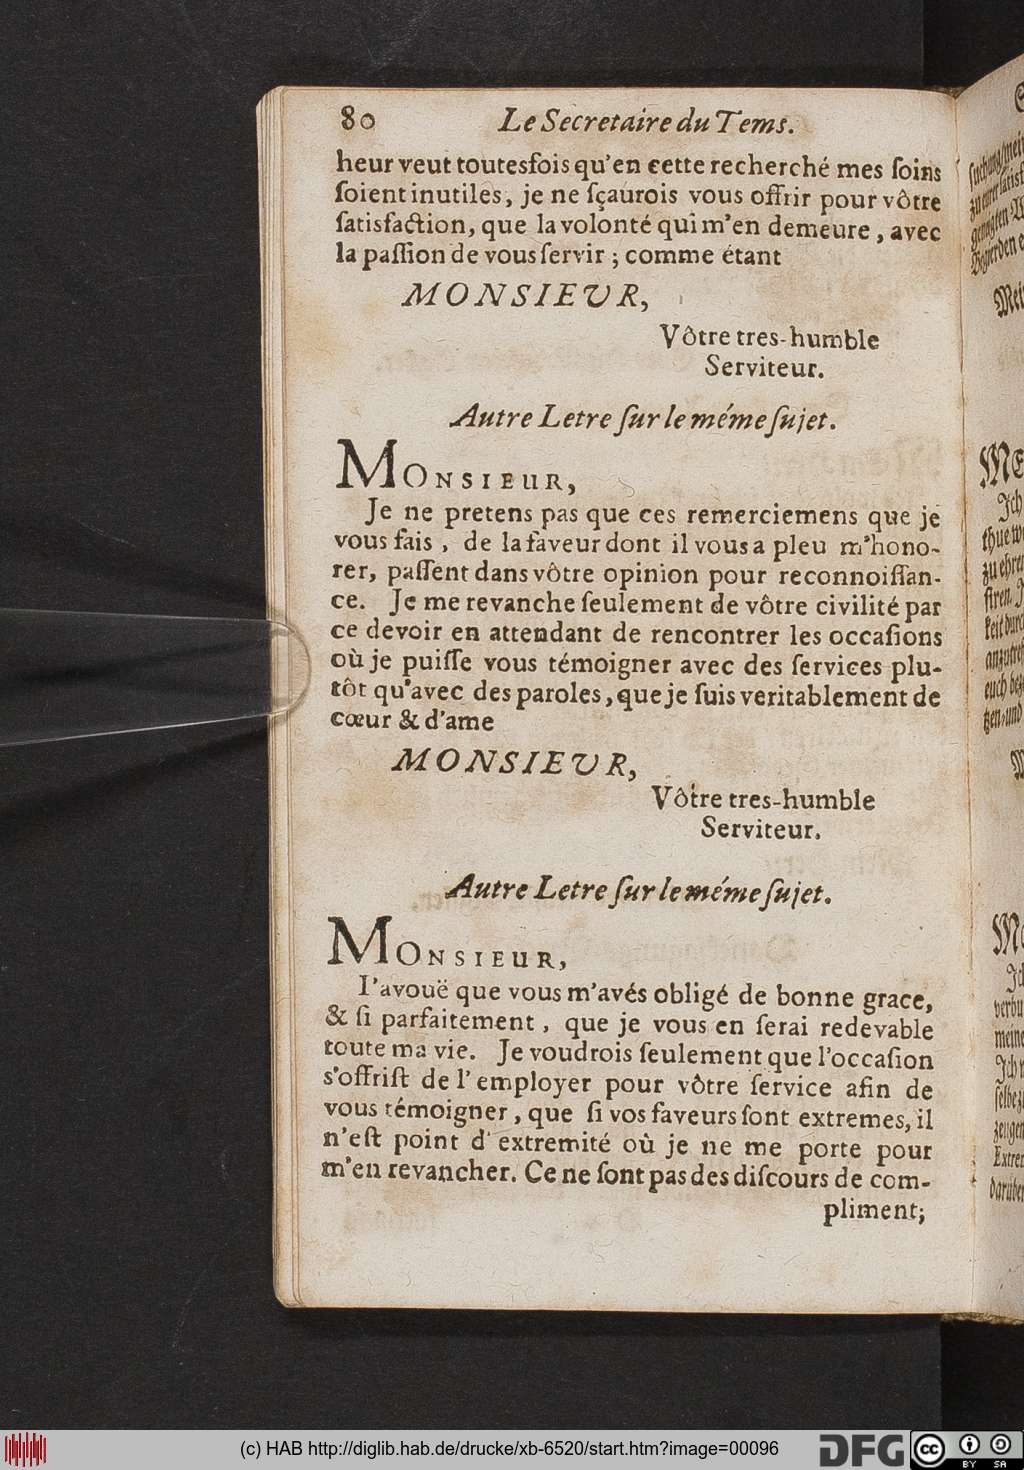 80 Le Secretaire du Tems.
heur veut toutesfois qu'en cette recherché mes ſoins
ſoient inutiles, je ne ſçaurois vous offrir pour vôtre
ſatisfaction, que la volonté qui m'en demeure, avec
la paſſion de vous ſervir; comme étant
MONSIEVR,
Vôtre tres-humble
Serviteur.
Autre Letre ſur le méme ſujet.
MONSIEUR,
Je ne pretens pas que ces remerciemens que je
vous fais, de la faveur dont il vous a pleu m'hono-
rer, paſſent dans vôtre opinion pour reconnoiſſan-
ce. Je me revanche ſeulement de vôtre civilité par
ce devoir en attendant de rencontrer les occaſions
où je puiſſe vous témoigner avec des ſervices plu-
tôt qu'avec des paroles, que je ſuis veritablement de
cœur & d'ame
MONSIEVR,
Vôtre tres-humble
Serviteur.
Autre Letre ſur le méme ſujet.
MONSIEUR,
I'avouë que vous m'avés obligé de bonne grace,
& ſi parfaitement, que je vous en ſerai redevable
toute ma vie. Je voudrois ſeulement que l'occaſion
s'offriſt de l'employer pour vôtre ſervice afin de
vous témoigner, que ſi vos faveurs ſont extremes, il
n'eſt point d'extremité où je ne me porte pour
m'en revancher. Ce ne ſont pas des diſcours de com-
pliment;
(c) HAB http://diglib.hab.de/drucke/xb-6520/start.htm?image=00096
DFG
cc
BY SA